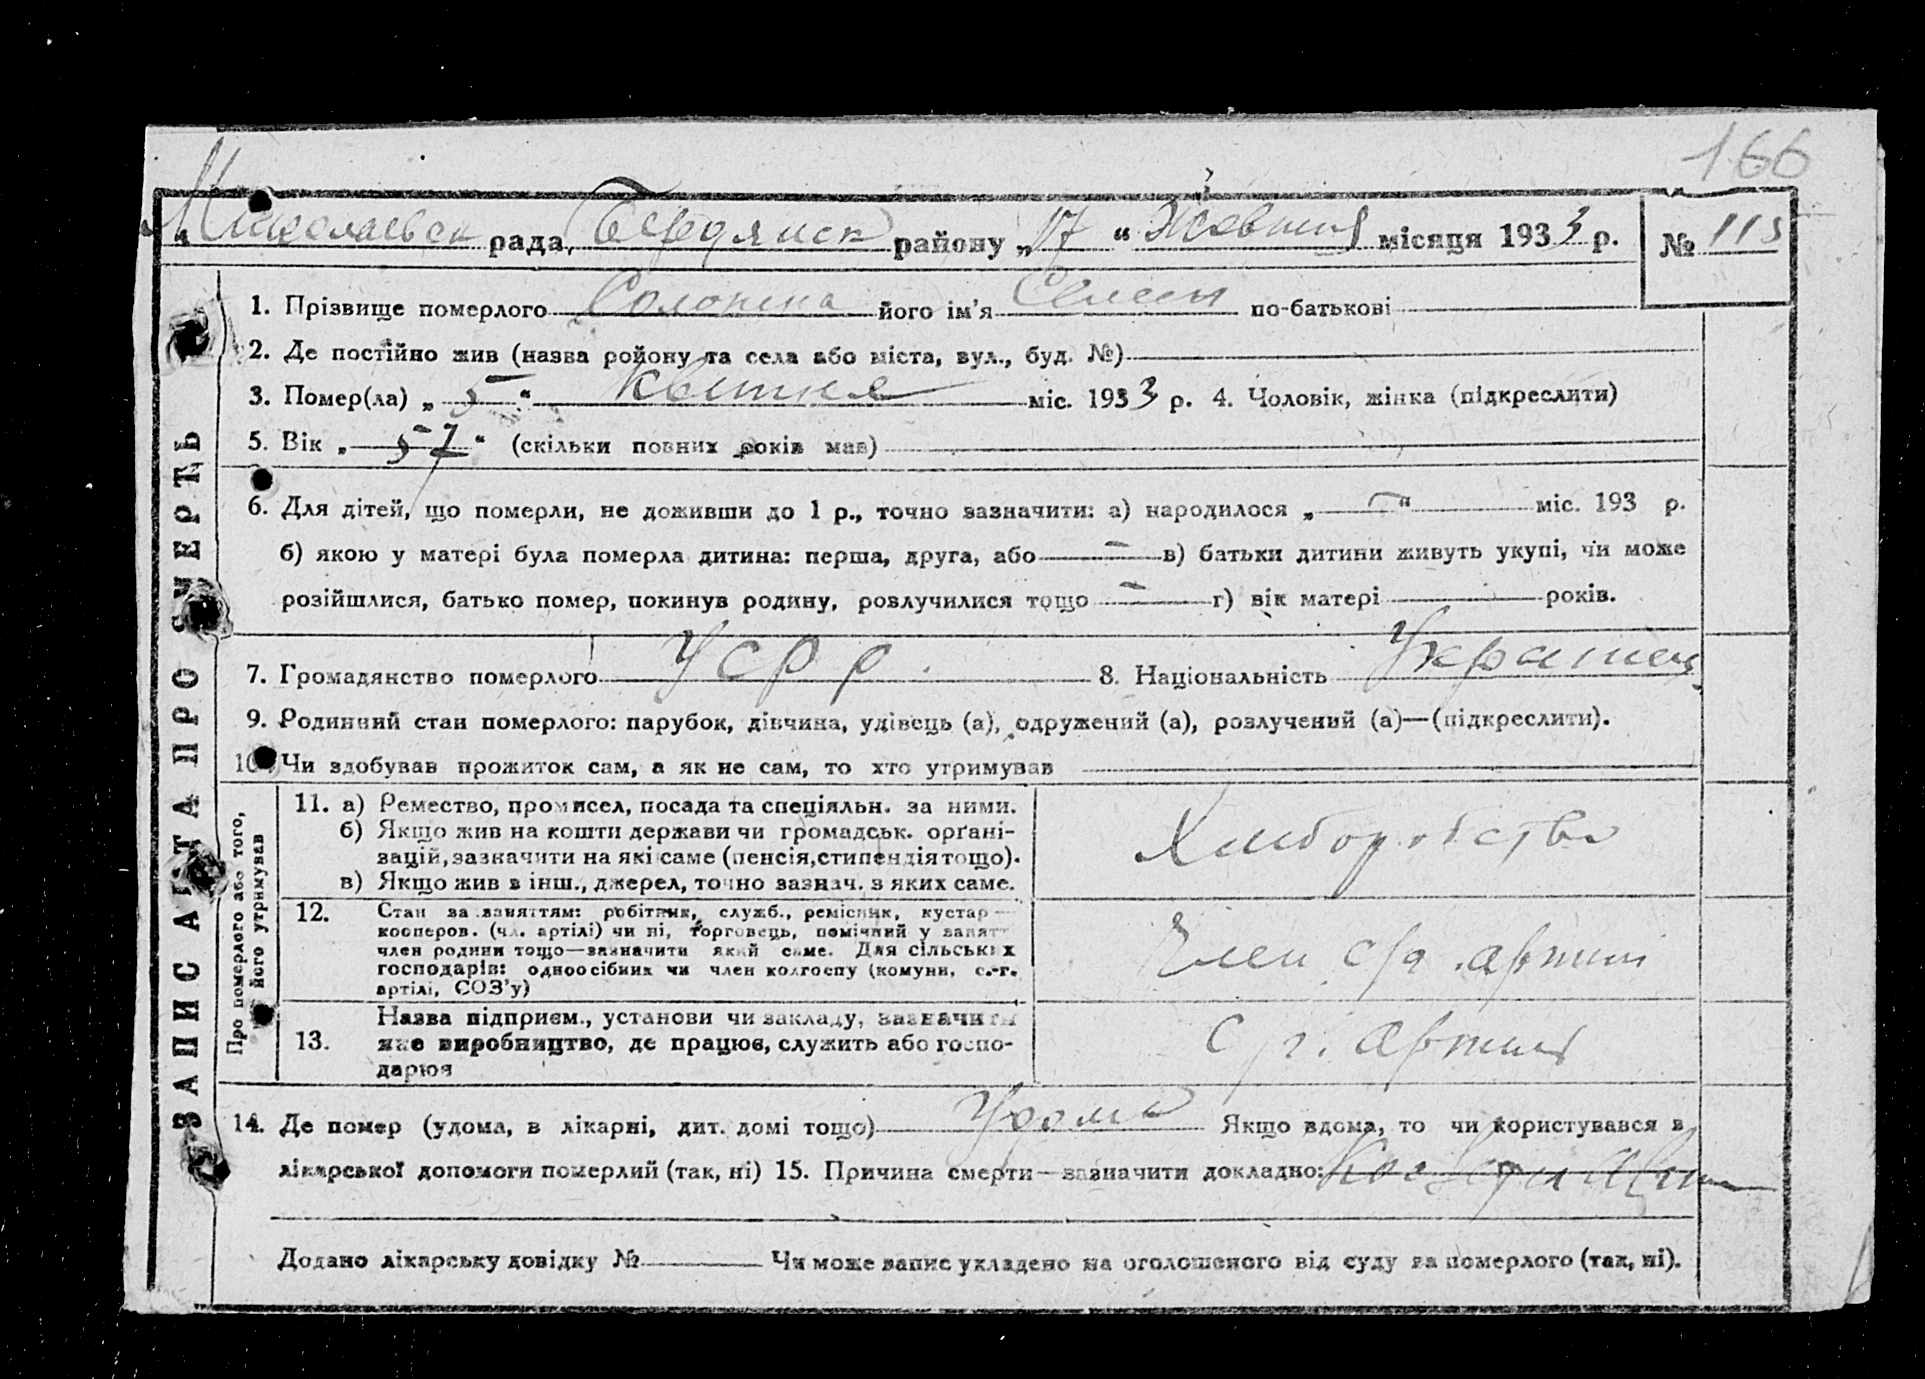 166
Миколаевск рада, Бердянск району „17“ Жовтня місяця 1933 р. № 113
ЗАПИС АКТА ПРО СМЕРТЬ
1. Прізвище померлого Солонина його ім'я Семен по-батькові
2. Де постійно жив (назва ройону та села або міста, вул., буд. №)
3. Помер(ла) „ 5 “ Квітня міс. 1933 р. 4. Чоловік, жінка (підкреслити)
5. Вік „ 57 “ (скільки повних років мав)
6. Для дітей, що померли, не доживши до 1 р., точно зазначити: а) народилося „ — “ міс. 193 р.
б) якою у матері була померла дитина: перша, друга, або — в) батьки дитини живуть укупі, чи може
розійшлися, батько помер, покинув родину, розлучилися тощо — г) вік матері років.
7. Громадянство померлого УСРР. 8. Національність Українец
9. Родинний стан померлого: парубок, дівчина, удівець (а), одружений (а), розлучений (а)—(підкреслити).
10. Чи здобував прожиток сам, а як не сам, то хто утримував
Про померлого або того, його утримував
11. а) Ремество, промисел, посада та спеціяльн. за ними.
б) Якщо жив на кошти держави чи громадськ. орґані-
зацій, зазначити на які саме (пенсія, стипендія тощо).
в) Якщо жив в інш., джерел, точно зазнач. з яких саме.
Хліборобство
12. Стан за заняттям: робітник, служб., ремісник, кустар—
кооперов. (чл. артілі) чи ні, торговець, помічний у занятт
член родини тощо—зазначити який саме. Для сільських
господарів: одноосібник чи член колгоспу (комуни, с.-г.
артілі, СОЗ'у)
Член с/г. артілі
13. Назва підприєм., установи чи закладу, зазначити
яке виробництво, де працює, служить або госпо-
дарює
С/г. артиль
14. Де помер (удома, в лікарні, дит. домі тощо) Удома Якщо вдома, то чи користувався в
лікарської допомоги померлий (так, ні) 15. Причина смерти—зазначити докладно:
Додано лікарську довідку № Чи може запис укладено на оголошеного від суду за померлого (так, ні).